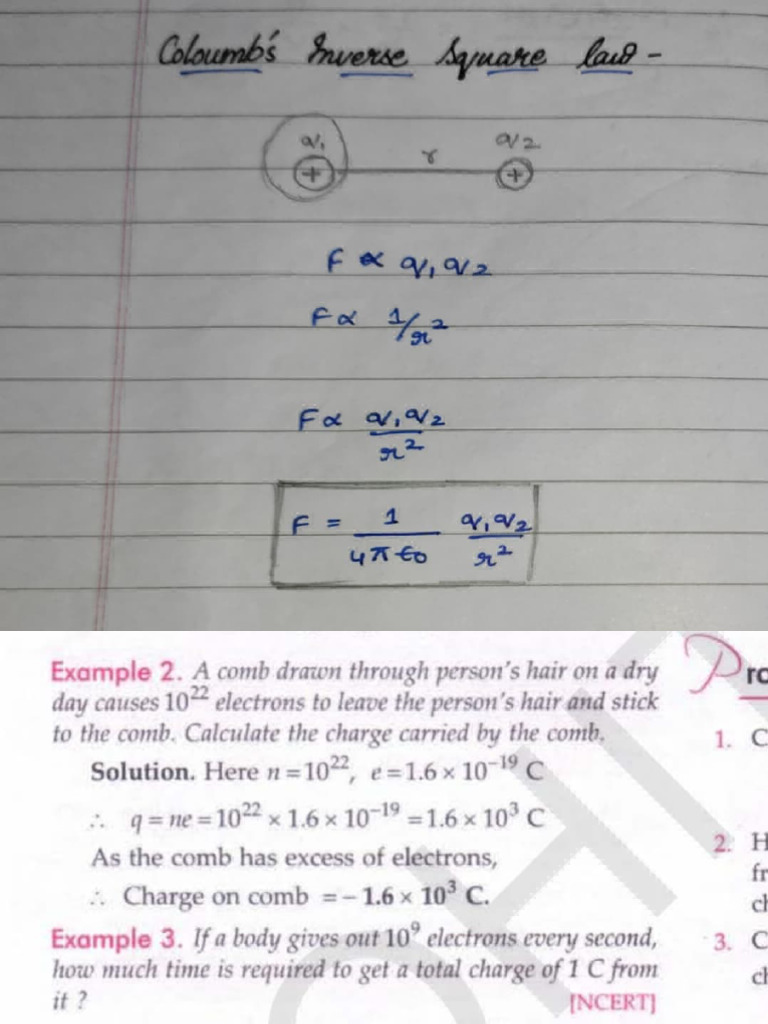 Coloumb's Inverse Square law -
q₁ r q₂
+ +
F ∝ q₁ q₂
F ∝ 1/r²
F ∝ q₁ q₂ / r²
F = 1 / 4π ε₀ q₁ q₂ / r²
Example 2. A comb drawn through person's hair on a dry
day causes 10²² electrons to leave the person's hair and stick
to the comb. Calculate the charge carried by the comb.
Solution. Here n = 10²², e = 1.6 × 10⁻¹⁹ C
∴ q = ne = 10²² × 1.6 × 10⁻¹⁹ = 1.6 × 10³ C
As the comb has excess of electrons,
∴ Charge on comb = – 1.6 × 10³ C.
Example 3. If a body gives out 10⁹ electrons every second,
how much time is required to get a total charge of 1 C from
it ? [NCERT]
1. C
2. H
fr
ch
3. C
ch